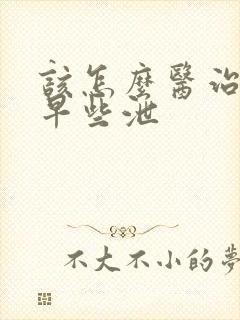 該怎麼醫治
早些泄
不大不小的夢